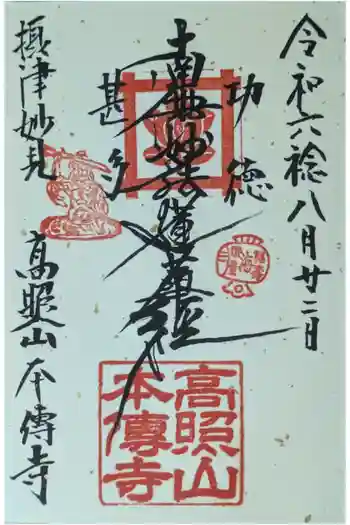 令和六稔八月廿二日
功徳
南無妙法蓮華経
甚多
摂津妙見
高照山本傳寺
高照山
本傳寺